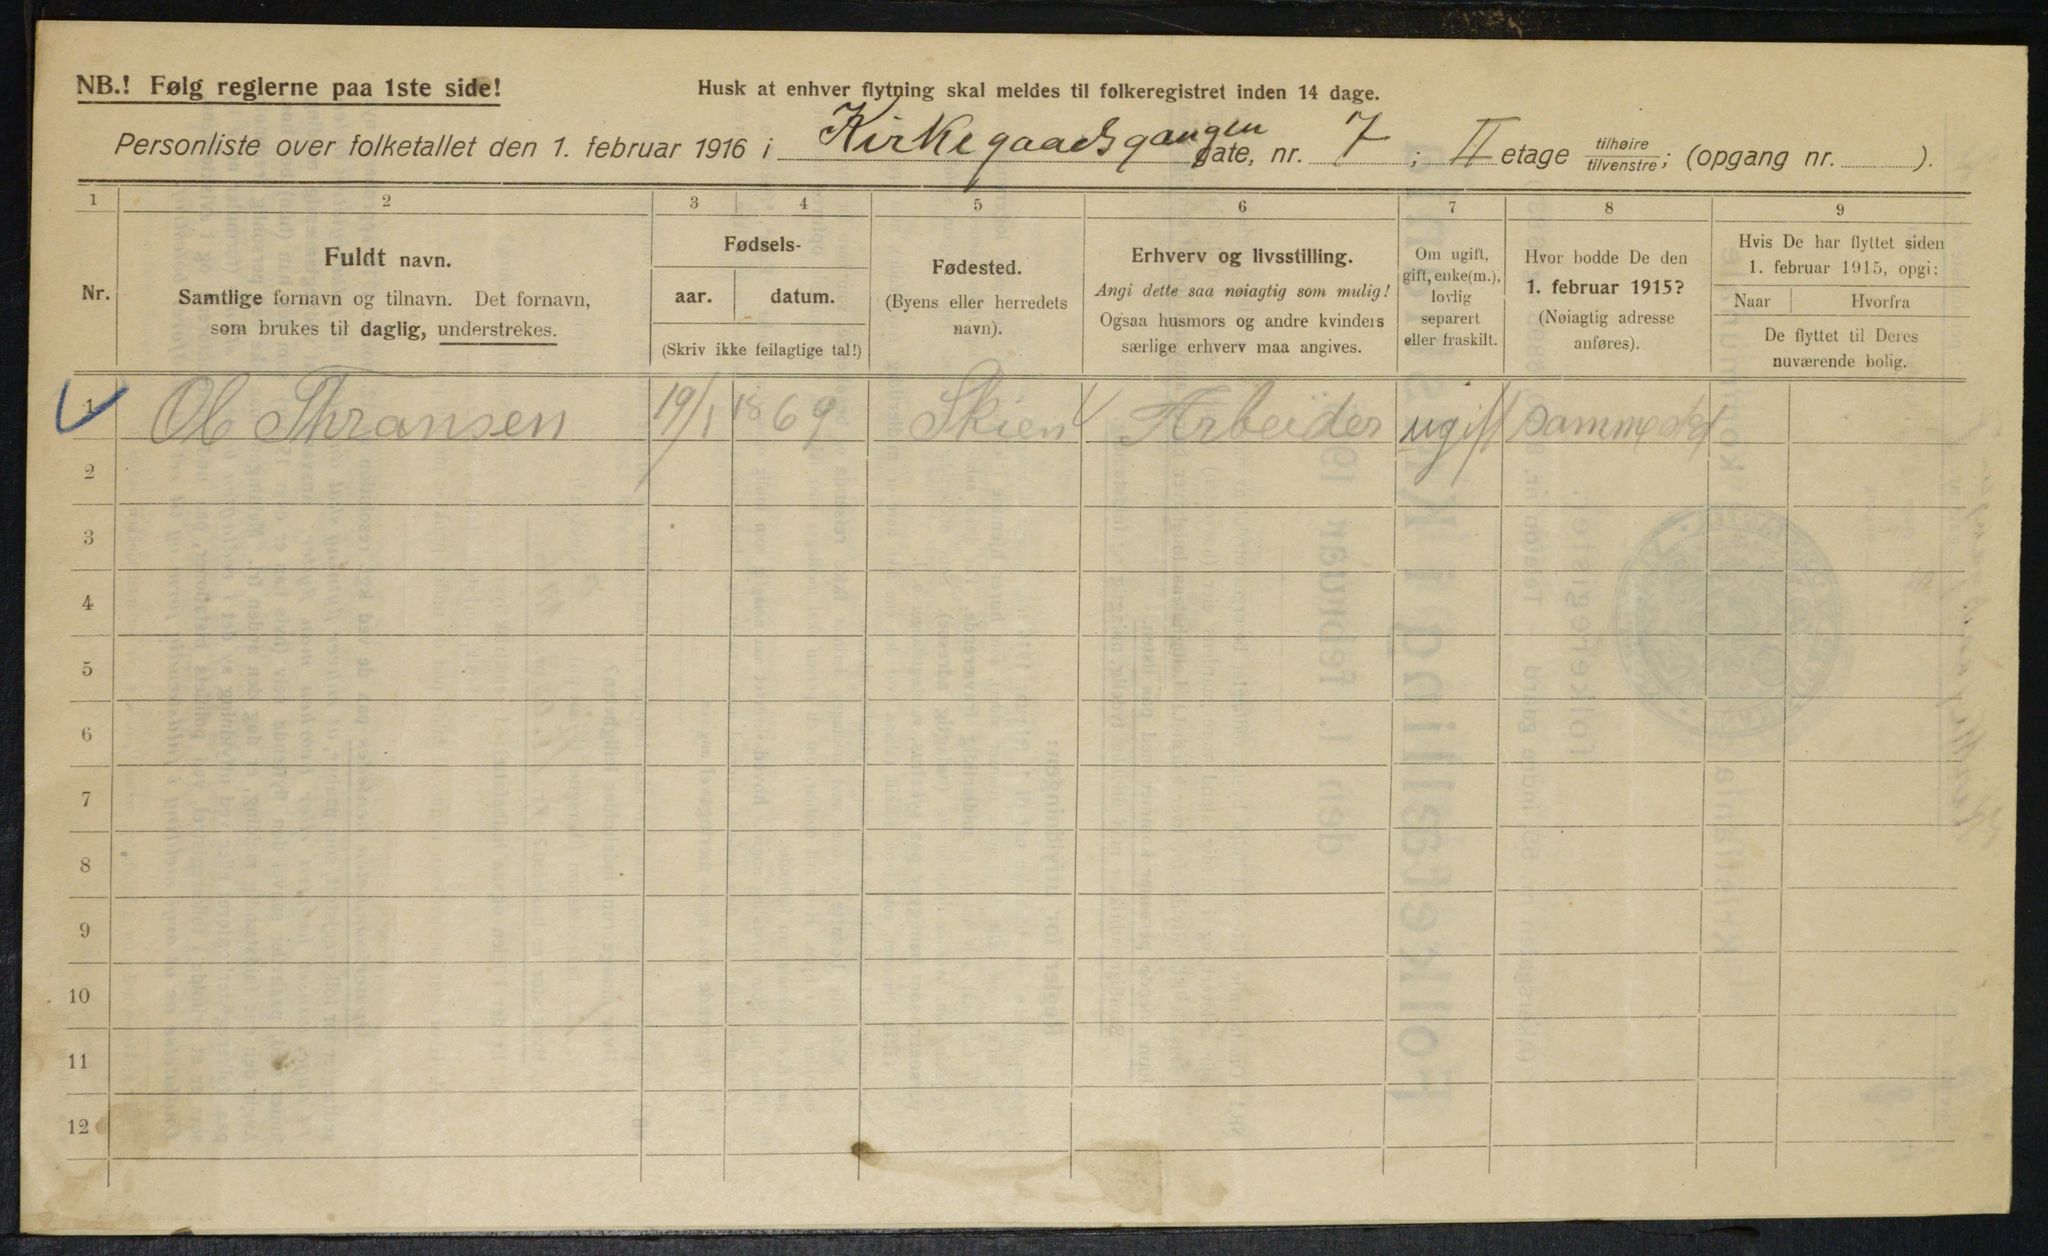 NB.! Følg reglerne paa 1ste side!
Husk at enhver flytning skal meldes til folkeregistret inden 14 dage.
Personliste over folketallet den 1. februar 1916 i Kirkegaardsgangen gate, nr. 7; II etage tilhøire/tilvenstre; (opgang nr. ).
1 2 3 4 5 6 7 8 9
Nr.
Fuldt navn.
Samtlige fornavn og tilnavn. Det fornavn,
som brukes til daglig, understrekes.
Fødsels-
aar. datum.
(Skriv ikke feilagtige tal!)
Fødested.
(Byens eller herredets
navn).
Erhverv og livsstilling.
Angi dette saa nøiagtig som mulig!
Ogsaa husmors og andre kvinders
særlige erhverv maa angives.
Om ugift,
gift, enke(m.),
lovlig
separert
eller fraskilt.
Hvor bodde De den
1. februar 1915?
(Nøiagtig adresse
anføres).
Hvis De har flyttet siden
1. februar 1915, opgi:
Naar Hvorfra
De flyttet til Deres
nuværende bolig.
1 Ol Thransen 19/1 1869 Skien Arbeider ugift Samme
2
3
4
5
6
7
8
9
10
11
12